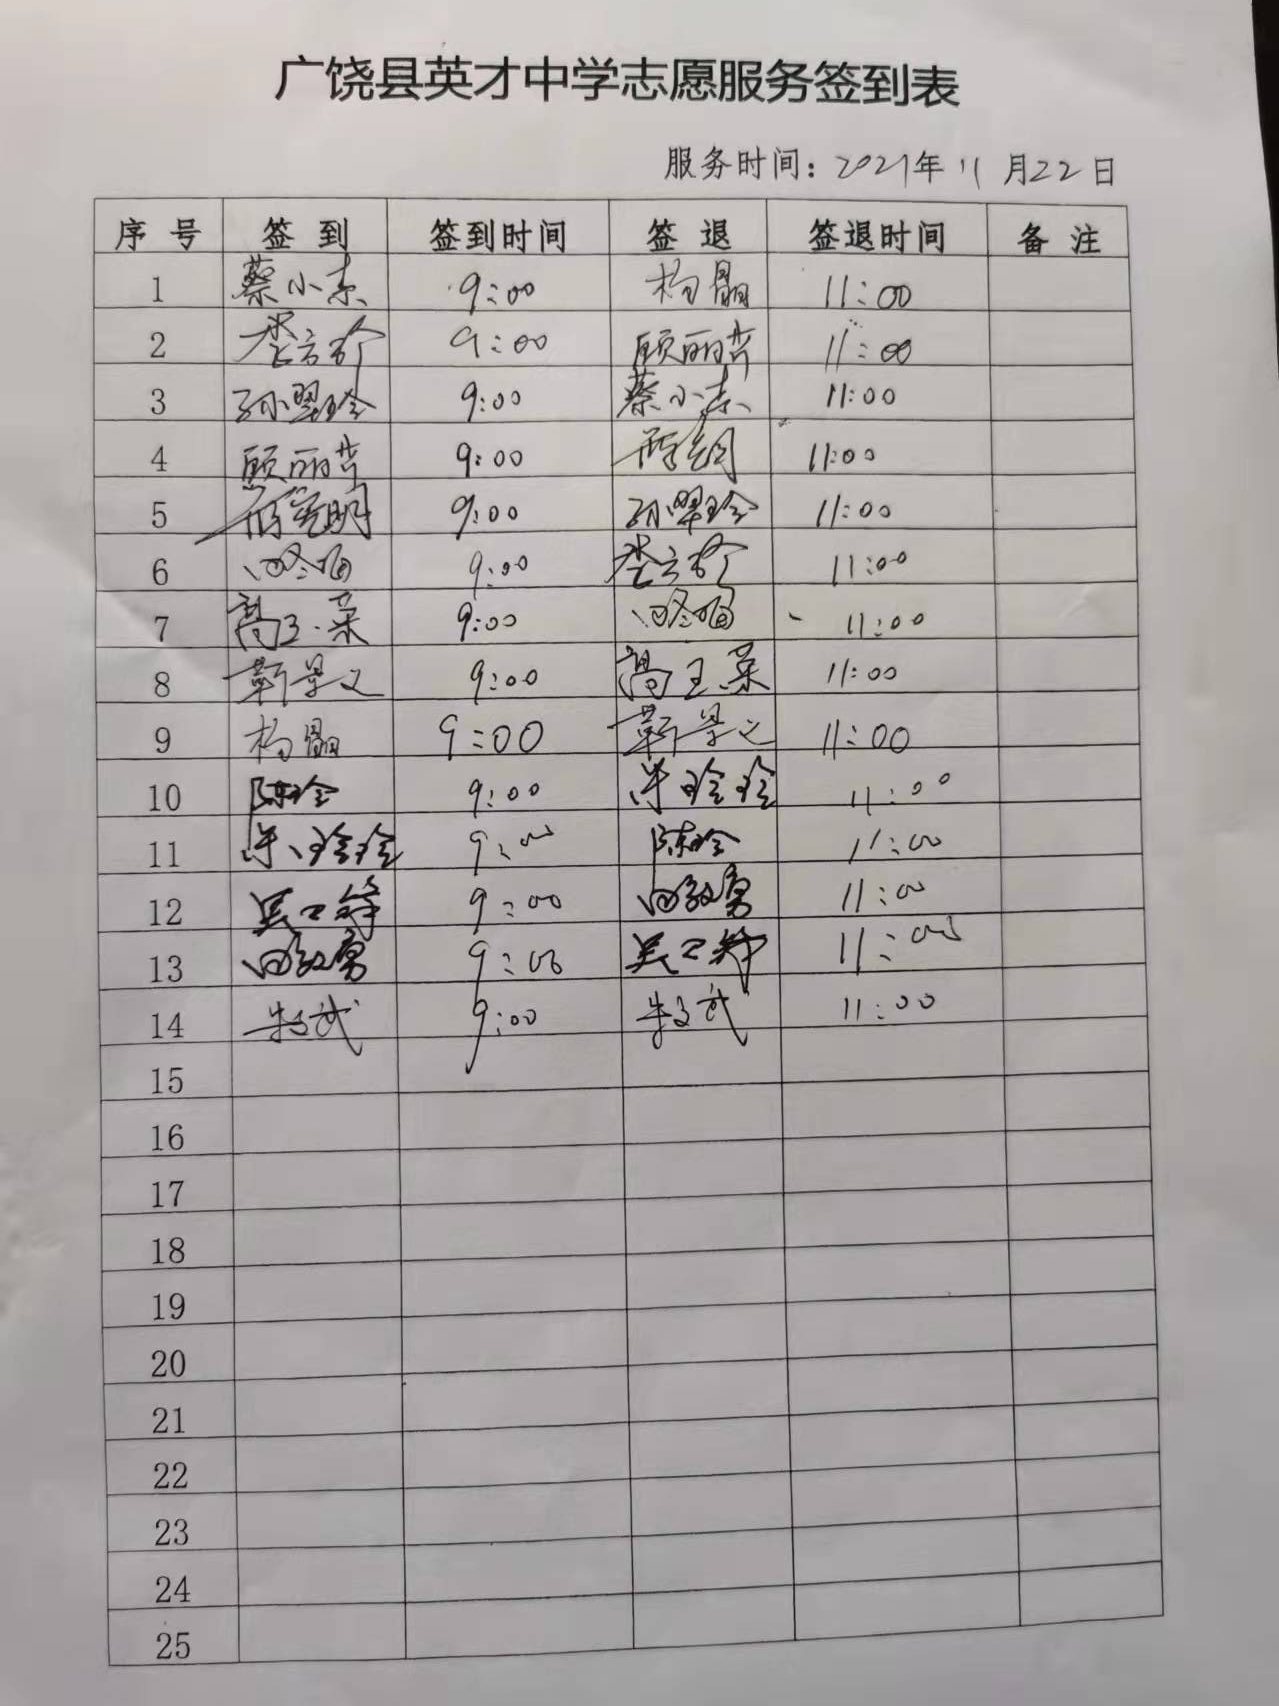 广饶县英才中学志愿服务签到表
服务时间：2021年11月22日
序号 签到 签到时间 签退 签退时间 备注
1 蔡小东 9:00 杨晶 11:00
2 9:00 顾丽芳 11:00
3 孙翠玲 9:00 蔡小东 11:00
4 顾丽芳 9:00 11:00
5 9:00 孙翠玲 11:00
6 9:00 11:00
7 高玉荣 9:00 11:00
8 靳景义 9:00 高玉荣 11:00
9 杨晶 9:00 靳景义 11:00
10 陈玲 9:00 玲玲 11:00
11 玲玲 9:00 陈玲 11:00
12 9:00 11:00
13 9:00 11:00
14 朱文武 9:00 朱文武 11:00
15
16
17
18
19
20
21
22
23
24
25